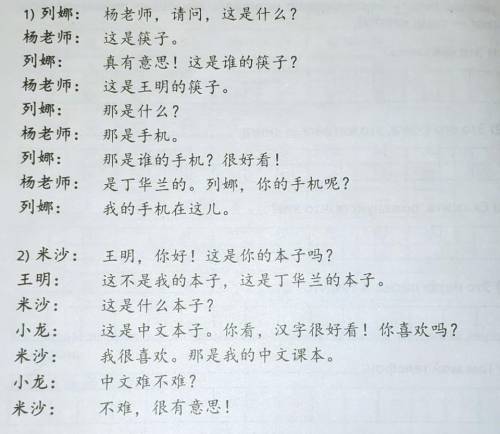 1) 列娜： 杨老师，请问，这是什么？
杨老师： 这是筷子。
列娜： 真有意思！这是谁的筷子？
杨老师： 这是王明的筷子。
列娜： 那是什么？
杨老师： 那是手机。
列娜： 那是谁的手机？很好看！
杨老师： 是丁华兰的。列娜，你的手机呢？
列娜： 我的手机在这儿。
2) 米沙： 王明，你好！这是你的本子吗？
王明： 这不是我的本子，这是丁华兰的本子。
米沙： 这是什么本子？
小龙： 这是中文本子。你看，汉字很好看！你喜欢吗？
米沙： 我很喜欢。那是我的中文课本。
小龙： 中文难不难？
米沙： 不难，很有意思！